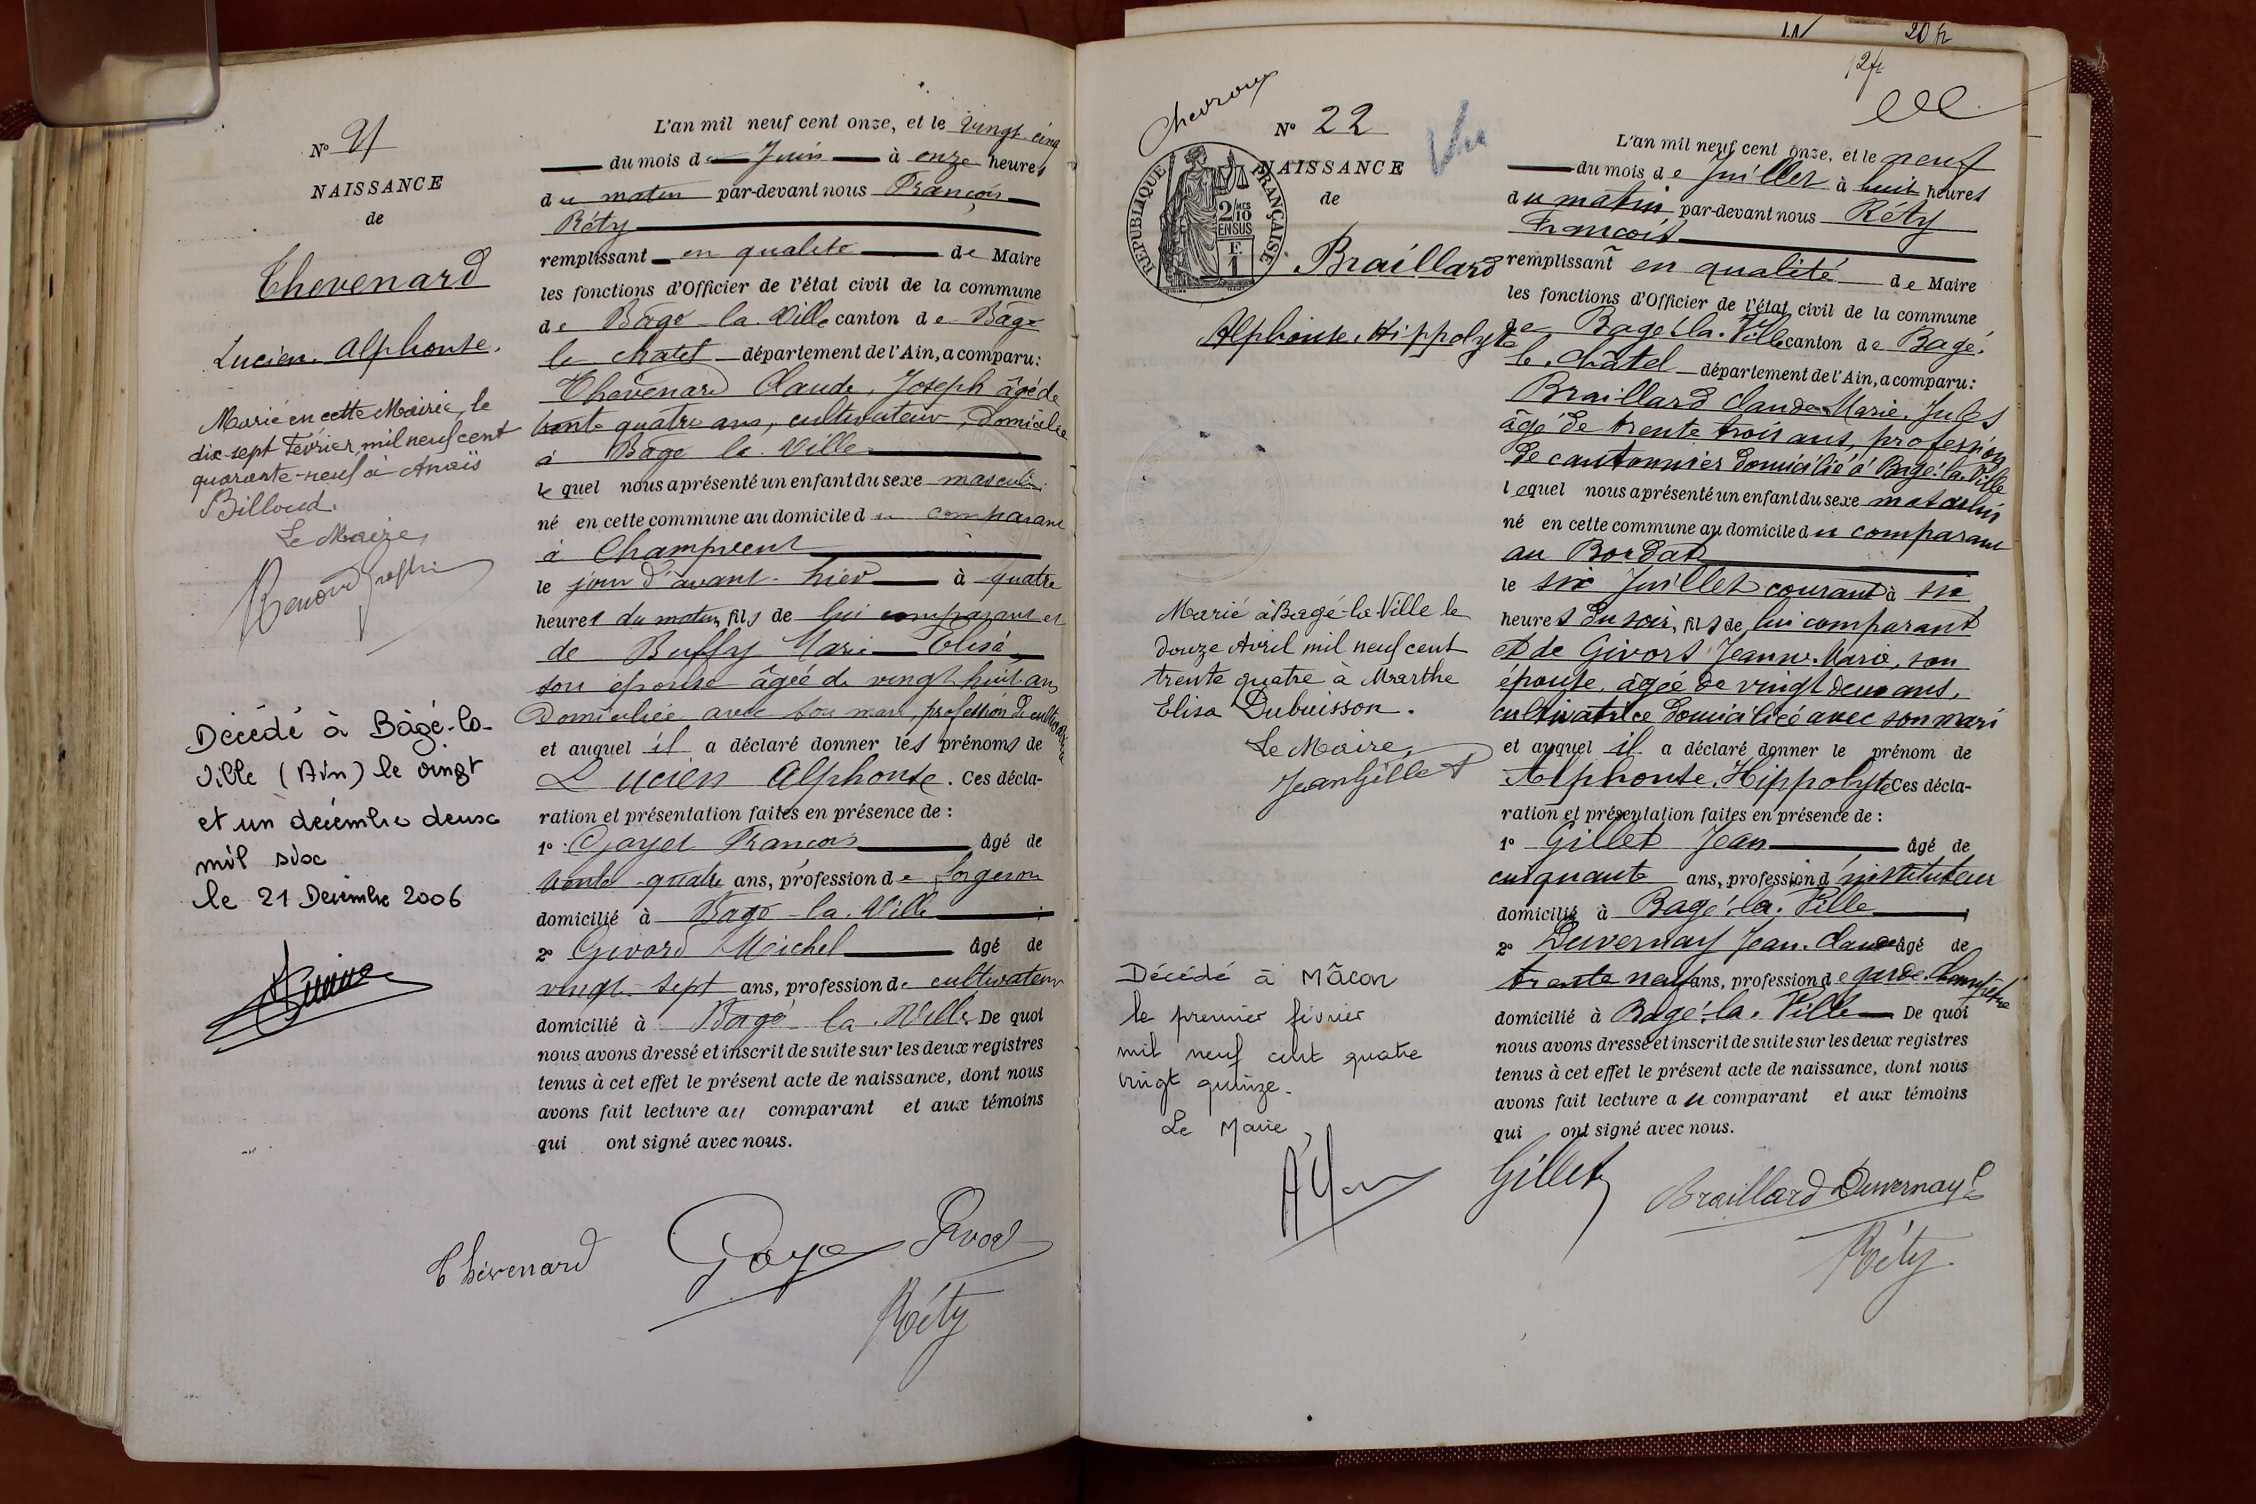 N° 21
NAISSANCE
de
Thevenard
Lucien Alphonse.
Marié en cette Mairie, le
dix-sept Février mil neuf cent
quarante-neuf à Anaïs
Billoud.
Le Maire,
Décédé à Bâgé-la-
Ville (Ain) le vingt
et un décembre deux
mil six
le 21 Décembre 2006
L'an mil neuf cent onze, et le vingt cinq
du mois de Juin à onze heures
du matin par-devant nous François
Réty
remplissant en qualité de Maire
les fonctions d'Officier de l'état civil de la commune
de Bâgé la Ville canton de Bâgé
le chatel département de l'Ain, a comparu:
Thevenard Claude, Joseph âgé de
trente quatre ans, cultivateur, domicilié
à Bâgé la Ville
lequel nous a présenté un enfant du sexe masculin
né en cette commune au domicile du comparant
à Champvent
le jour d'avant-hier à quatre
heures du matin, fils de lui comparant et
de Buffy Marie Elisa
son épouse âgée de vingt huit ans
domiciliée avec son mari, profession de cultivatrice
et auquel il a déclaré donner les prénoms de
Lucien Alphonse. Ces décla-
ration et présentation faites en présence de :
1° Goyet François âgé de
trente-quatre ans, profession de forgeron
domicilié à Bâgé-la-Ville ;
2° Givord Michel âgé de
vingt-sept ans, profession de cultivateur
domicilié à Bâgé la Ville De quoi
nous avons dressé et inscrit de suite sur les deux registres
tenus à cet effet le présent acte de naissance, dont nous
avons fait lecture au comparant et aux témoins
qui ont signé avec nous.
Thévenard Goye Givord
Réty
20 fr
12 fr
Chevroux
N° 22
Vu
NAISSANCE
de
RÉPUBLIQUE FRANÇAISE
2/10 MES
EN SUS
F.
1
Braillard
Alphonse, Hippolyte
Marié à Bâgé-la-Ville le
douze Avril mil neuf cent
trente quatre à Marthe
Elisa Dubuisson.
Le Maire,
Jean Gillet
Décédé à Mâcon
le premier février
mil neuf cent quatre
vingt quinze.
Le Maire,
L'an mil neuf cent onze, et le neuf
du mois de Juillet à huit heures
du matin par-devant nous Réty
François
remplissant en qualité de Maire
les fonctions d'Officier de l'état civil de la commune
de Bagé-la-Ville canton de Bagé.
le châtel département de l'Ain, a comparu:
Braillard Claude Marie, Jules
âgé de trente trois ans, profession
de cantonnier domicilié à Bagé-la-Ville
lequel nous a présenté un enfant du sexe masculin
né en cette commune au domicile du comparant
au Bordat
le six Juillet courant à six
heures du soir, fils de lui comparant
et de Givors Jeanne-Marie, son
épouse, âgée de vingt deux ans,
cultivatrice domiciliée avec son mari
et auquel il a déclaré donner le prénom de
Alphonse, Hippolyte Ces décla-
ration et présentation faites en présence de :
1° Gillet Jean âgé de
cinquante ans, profession d'instituteur
domicilié à Bagé-la-Ville ;
2° Duvernay Jean-Claude âgé de
trente neuf ans, profession de garde-champêtre
domicilié à Bagé-la-Ville De quoi
nous avons dressé et inscrit de suite sur les deux registres
tenus à cet effet le présent acte de naissance, dont nous
avons fait lecture au comparant et aux témoins
qui ont signé avec nous.
Gillet Braillard Duvernay
Réty